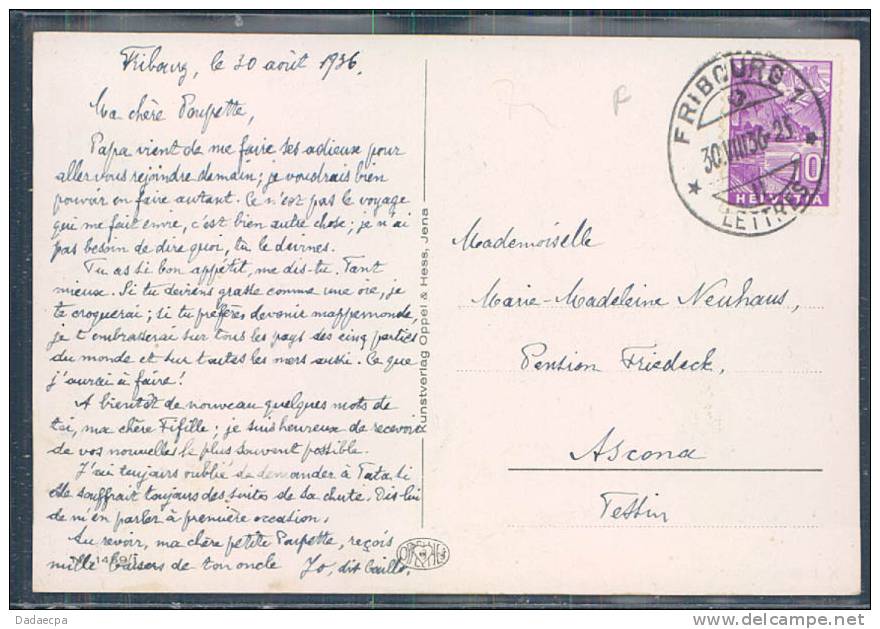 Fribourg, le 30 août 1936.
Ma chère Poupette,
Papa vient de me faire ses adieux pour
aller vous rejoindre demain; je voudrais bien
pouvoir en faire autant. Ce n'est pas le voyage
qui me fait envie, c'est bien autre chose; je n'ai
pas besoin de dire quoi, tu le devines.
Tu as si bon appétit, me dis-tu. Tant
mieux. Si tu deviens grasse comme une oie, je
te croquerai; si tu préfères devenir mappemonde,
je t'embrasserai sur tous les pays des cinq parties
du monde et sur toutes les mers aussi. Ce que
j'aurai à faire!
A bientôt de nouveau quelques mots de
toi, ma chère Fifille; je suis heureux de recevoir
de vos nouvelles le plus souvent possible.
J'ai toujours oublié de demander à Tata si
elle souffrait toujours des suites de sa chute. Dis-lui
de m'en parler à première occasion.
Au revoir, ma chère petite Poupette, reçois
mille baisers de ton oncle Jo, dit
Kunstverlag Oppel & Hess, Jena
FRIBOURG 1
30.VIII.36-23
LETTRES
10
HELVETIA
Mademoiselle
Marie-Madeleine Neuhaus,
Pension Friedeck,
Ascona
Tessin
Dadaecpa
www.delcampe.net